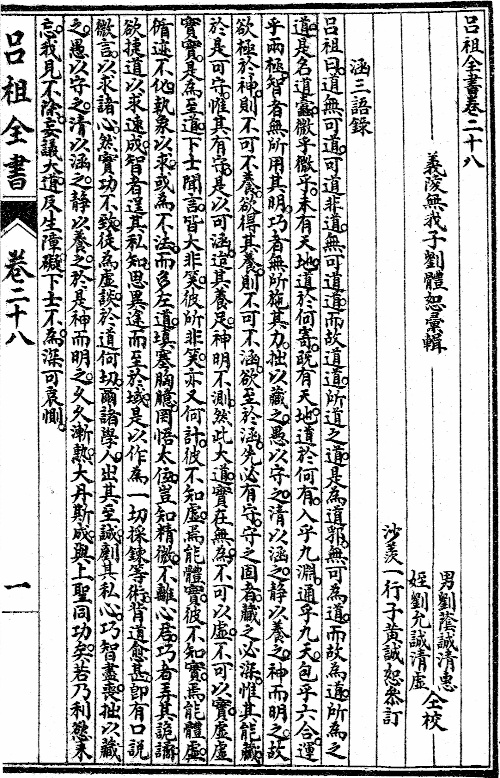 呂祖全書卷二十八
義陵無我子劉體恕彙輯
男劉蔭誠清惠
姪劉允誠清虛
仝校
沙羨一行子黃誠恕叅訂
涵三語錄
呂祖曰道無可道可道非道無可道道而故道道所道之道是為道耶無可為道而故為道所為之
道是名道靈微乎微乎未有天地道於何寄既有天地道於何有入乎九淵通乎九天包乎六合運
乎兩極智者無所用其明巧者無所施其力拙以藏之愚以守之清以涵之靜以養之神而明之故
欲極於神則不可不養欲得其養則不可不涵欲至於涵先必有守守之固者藏之必深惟其能藏
於是可守惟其有守是以可涵迨其養足神明不測然此大道實在無為不可以虛不可以實虛虛
實實是為至道下士聞言皆大非笑彼所非笑亦又何計彼不知虛焉能體實彼不知實焉能體虛
循迹不化執象以求或為不法而多左道填塞胸臆罔悟太伍豈知精微不離心君巧者弄其詭譎
欲捷道以求速成智者逞其私知思異途而至於域是以作為一切採鍊等術背道愈甚即有口說
微言以求諸心然實功不致徒為虛談於道何切爾諸學人出其至誠剷其私心巧智盡喪拙以藏
之愚以守之清以涵之靜以養之於是神而明之久久漸熟大丹斯成與上聖同功矣若乃利慾未
忘我見不除妄議大道反生障礙下士不為深可哀惻
呂祖全書
卷二十八
一